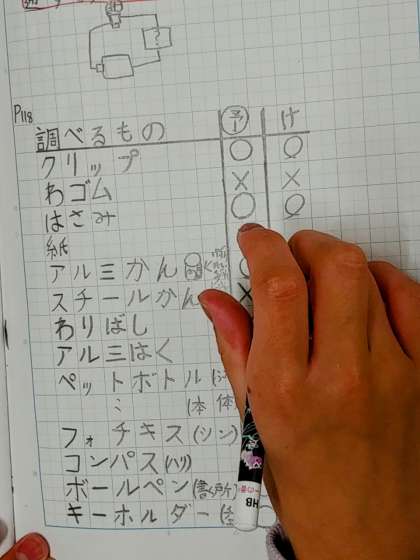 P118
調べるもの 予 け
クリップ ○ ○
わゴム × ×
はさみ ○ ○
紙
アルミかん
スチールかん ×
わりばし
アルミはく
ペットボトル
〃 (本体
フォチキス(シン)
コンパス(ハリ)
ボールペン(書く所)
キーホルダー
HB